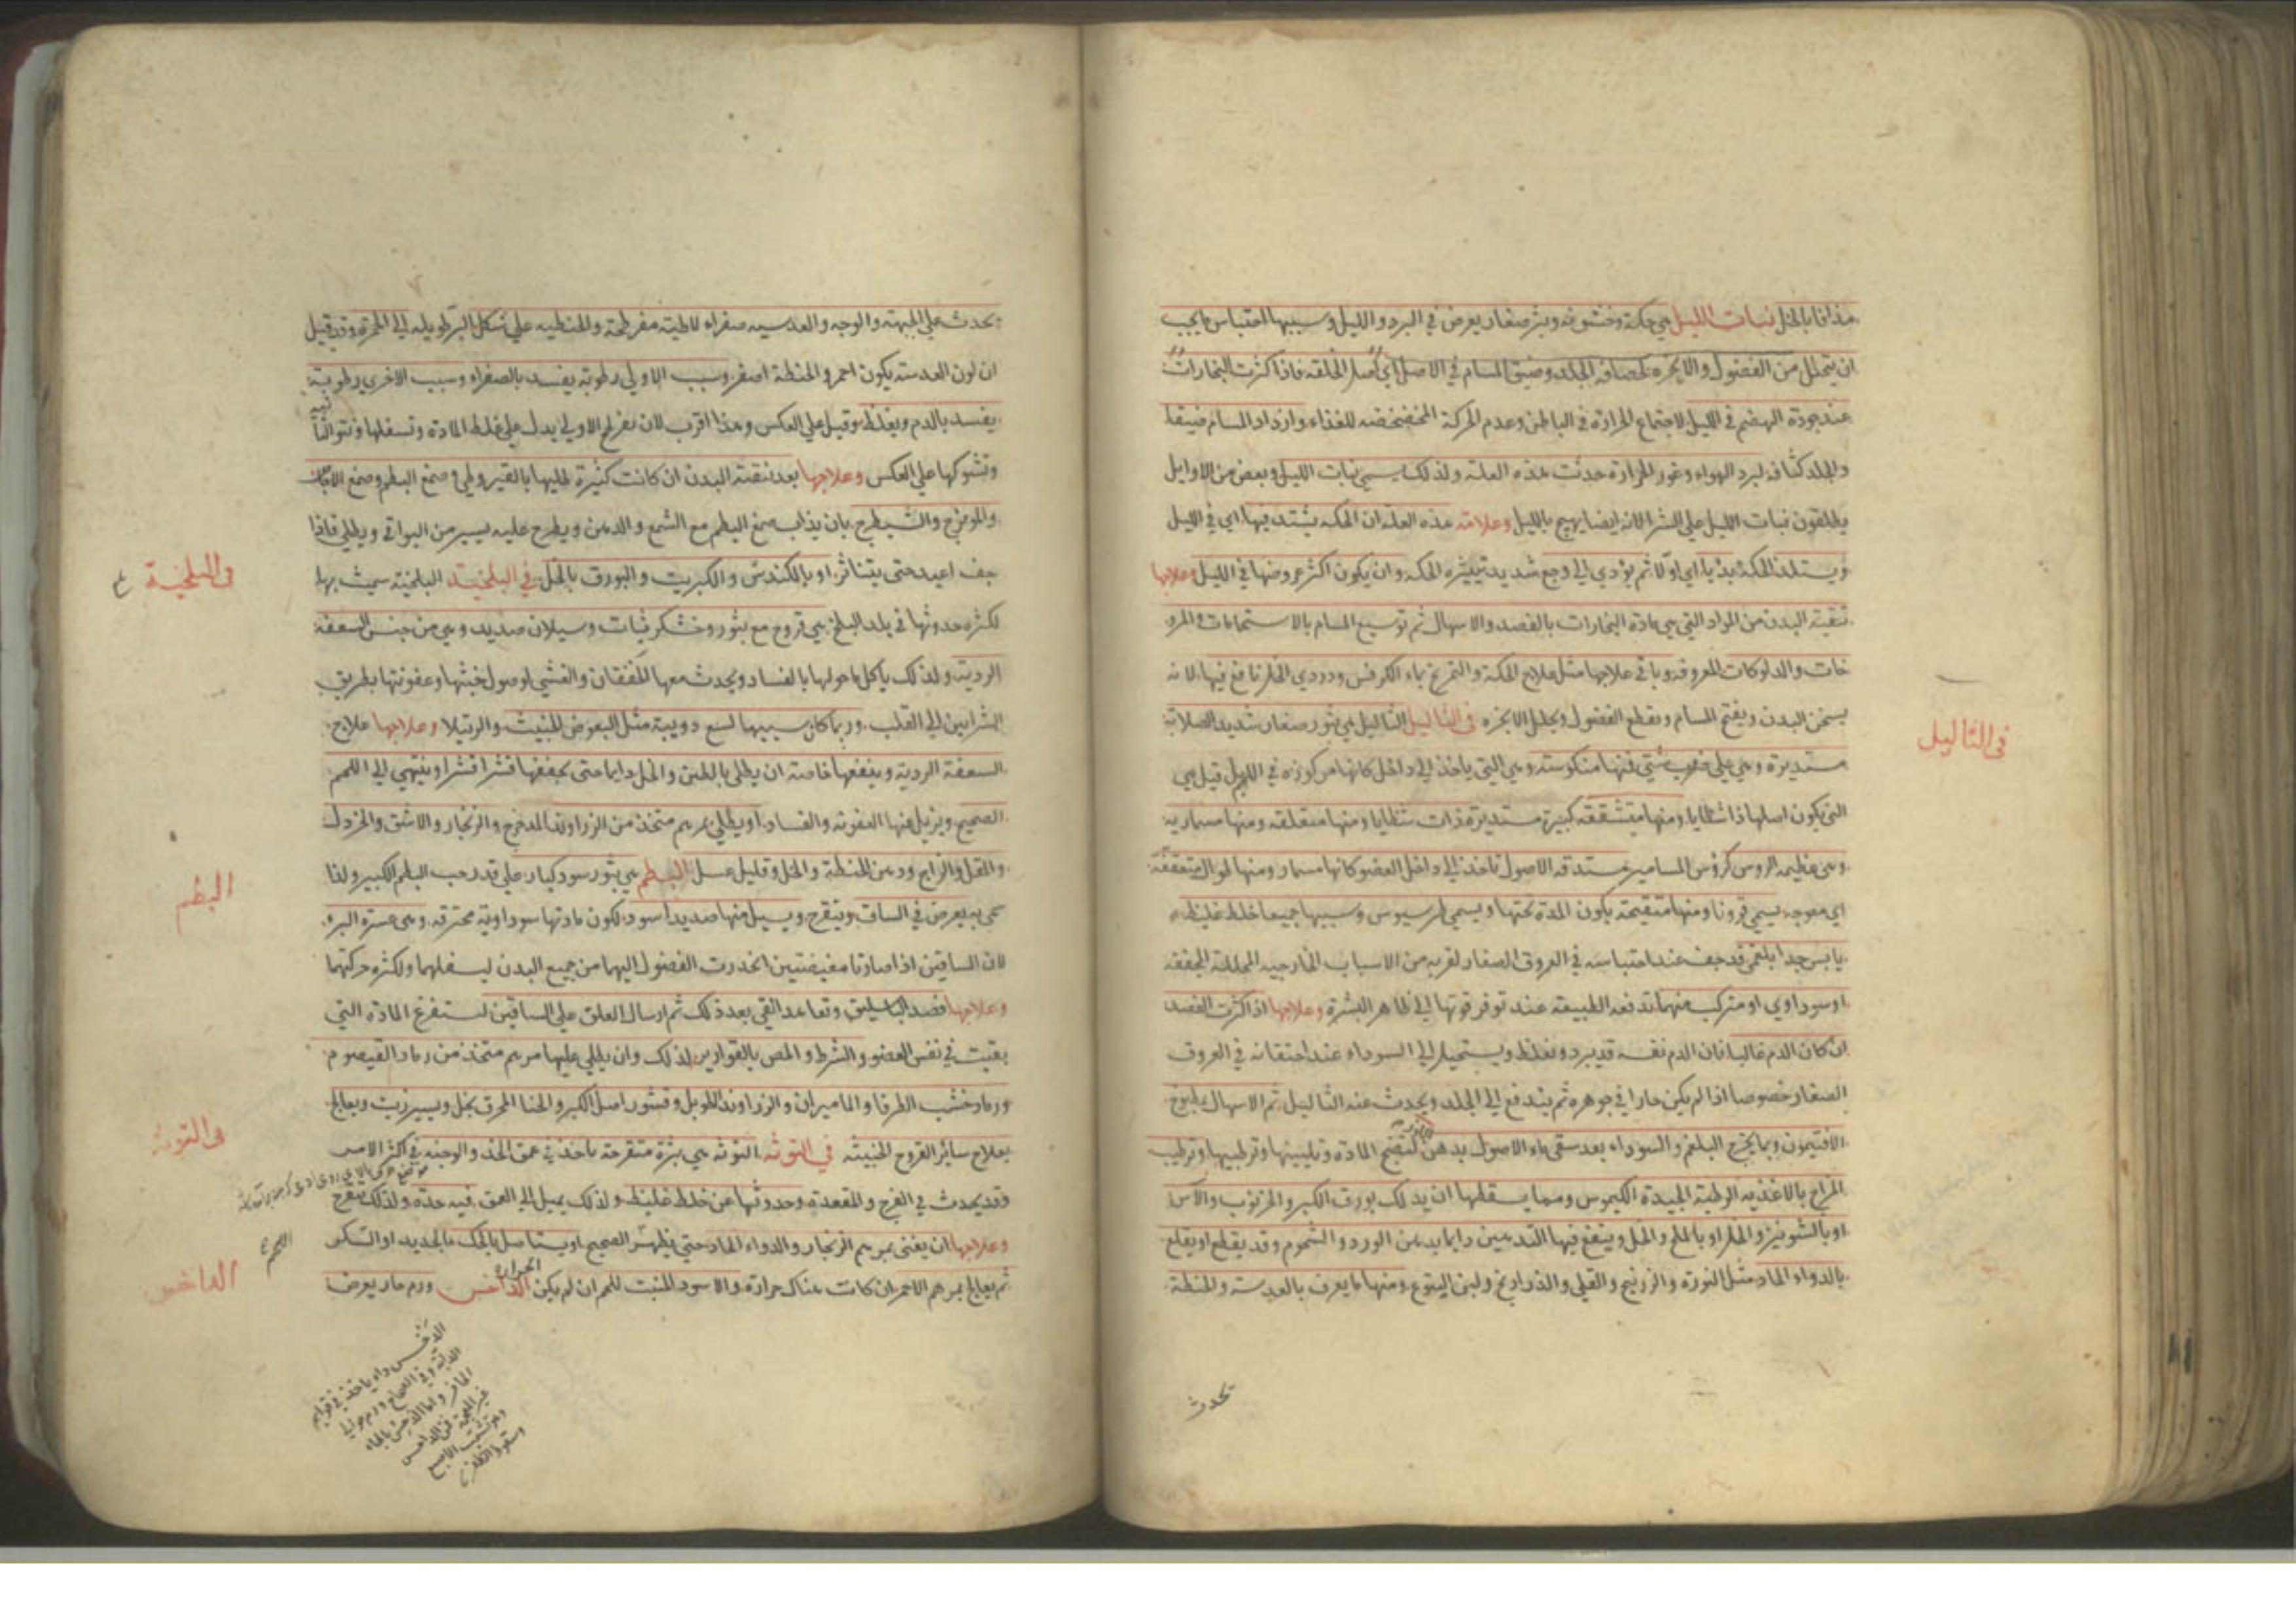 مذافا بالخل نبات الليل هي حكة وخشونة وبثر صغار يعرض في البرد والليل وسببها احتباس ما يجب
ان يتحلل من الفضول والابخرة لحصافة الجلد وضيق المسام في الاصل اي اصل الخلقة فاذا كثرت البخارات
عند جودة الهضم في الليل لاجتماع الحرارة في الباطن وعدم الحركة المخضخضة للغذاء وازداد المسام ضيقا
والجلد كثافة لبرد الهواء وغور الحرارة حدثت هذه العلة ولذلك يسمى نبات الليل وبعض من الاوايل
يطلقون نبات الليل على الشرا لانه ايضا يهيج بالليل وعلامة هذه العلة ان الحكة يشتد فيها اي في الليل
ويستلذ الحكة بديا اي اولا ثم يؤدي الى وجع شديد تثيره الحكة وان يكون اكثر عروضها في الليل وعلاجها
تنقية البدن من المواد التي هي مادة البخارات بالفصد والاسهال ثم توسيع المسام بالاستحمامات والمرو
خات والدلوكات المعروفة وباقي علاجها مثل علاج الحكة والتمريخ بماء الكرفس ودردي الخل نافع فيها لانه
يسخن البدن ويفتح المسام ويقطع الفضول ويحلل الابخرة في الثاليل الثاليل هي بثور صغار شديد الصلابة
مستديرة وهي على ضروب شتى فمنها منكوسة وهي التي ياخذ الى داخل كانها مركوزة في اللحم قيل هي
التي يكون اصلها ذا شظايا ومنها متشققة كبيرة مستديرة ذات شظايا ومنها متعلقة ومنها مسمارية
وهي عظيمة الروس كرؤس المسامير مستدقة الاصول تاخذ الى داخل العضو كانها مسمار ومنها طوال متعقفة
اي معوجة يسمى قرونا ومنها متقيحة يكون المدة تحتها ويسمى طرسيوس وسببها جميعا خلط غليظ
يابس جدا بلغمي قد جف عند احتباسه في العروق الصغار لقربه من الاسباب الخارجية المحللة المجففة
او سوداوي او متركب منهما تدفعه الطبيعة عند توفر قوتها الى ظاهر البشرة وعلاجها اذا كثرت الفصد
ان كان الدم غالبا فان الدم نفسه قد يبرد ويغلظ ويستحيل الى السوداء عند احتقانه في العروق
الصغار خصوصا اذا لم يكن حارا في جوهره ثم يندفع الى الجلد ويحدث عنه الثاليل ثم الاسهال بمطبوخ
الافتيمون وبما يخرج البلغم والسوداء بعد سقي ماء الاصول بدهن لنضج المادة وتليينها وترطيبها وترطيب
المزاج بالاغذية الرطبة الجيدة الكيموس ومما يسقطها ان يدلك بورق الكبر والخرنوب والآس
او بالشونيز والخل او بالملح والخل وينفع فيها التدهين دايما بدهن الورد والشموم وقد يقلع او يقلع
بالدواء الحاد مثل النورة والزرنيخ والقلي والذراريخ ولبن اليتوع ومنها ما يعرف بالعدسة والحنطة
تحدث
في الثاليل
تحدث على الجبهة والوجه والعدسية صفراء لاطية مفرطحة والحنطية على شكل البر طويلة الى الحمرة وقد قيل
ان لون العدسة يكون احمر والحنطة اصفر وسبب الاولى رطوبة يفسد بالصفراء وسبب الاخرى رطوبة
يفسد بالدم ويغلظ وقيل على العكس وهذا اقرب لان تفرطح الاولى يدل على غلظ المادة وتسفلها ونتو الثانية
وتشوكها على العكس وعلاجها بعد تنقية البدن ان كانت كثيرة طليها بالقيروطي وصمغ البطم وصمغ الاجاص
والمويزج والشيطرج بان يذاب صمغ البطم مع الشمع والدهن ويطرح عليه يسير من البواقي ويطلى فاذا
جف اعيد حتى يتناثر او بالكندش والكبريت والبورق بالخل في البلخية البلخية سميت بها
لكثرة حدوثها في بلد البلخ هي قروح مع بثور وخشكريشات وسيلان صديد وهي من جنس السعفة
الردية ولذلك ياكل ما حولها بالفساد ويحدث معها الخفقان والغشي لوصول خبثها وعفونتها بطريق
الشرايين الى القلب وربما كان سببها لسع دويبة مثل البعوض الخبيث والرتيلا وعلاجها علاج
السعفة الردية وينفعها خاصة ان يطلى بالطين والخل دايما حتى يجففها قشرا قشرا وينتهي الى اللحم
الصحيح ويزيل عنها العفونة والفساد او يطلى بمرهم متخذ من الزراوند المدحرج والزنجار والاشق والخردل
والمقل والزاج ودهن الحنطة والخل وقليل عسل البطم هي بثور سود كبار على قدر حب البطم الكبير ولذا
سمي به يعرض في الساق ويتقرح ويسيل منها صديد اسود لكون مادتها سوداوية محترقة وهي عسرة البرء
لان الساقين اذا صارتا مغيضتين انحدرت الفضول اليهما من جميع البدن لسفلهما ولكثرة حركتهما
وعلاجها فصد الباسليق وتعاهد القي بعد ذلك ثم ارسال العلق على الساقين لتستفرغ المادة التي
بقيت في نفس العضو والشرط والمص بالقوارير لذلك وان يطلى عليها مرهم متخذ من رماد القيصوم
ورماد خشب الطرفا والماميران والزراوند الطويل وقشور اصل الكبر والحنا المحرق بخل ويسير زيت ويعالج
بعلاج سائر القروح الخبيثة في التوثة التوثة هي بثرة متقرحة تاخذ في عمق الخد والوجنة في اكثر الامر
وقد يحدث في الفرج والمقعدة وحدوثها عن خلط غليظ ولذلك يميل الى العمق فيه حدة ولذلك يتقرح
وعلاجها ان يفنى بمرهم الزنجار والدواء الحاد حتى يظهر الصحيح او يستاصل بالحك بالحديد او السكر
ثم يعالج بمرهم الاحمر ان كانت هناك حرارة والاسود المنبت للحم ان لم يكن الحرارة الداخس ورم حار يعرض
في البلخية
البطم
في التوثة
الداخس
اللحم
الدخس داء ياخذ في قوايم
الدابة وفي الصحاح ورم حوالي
الحافر